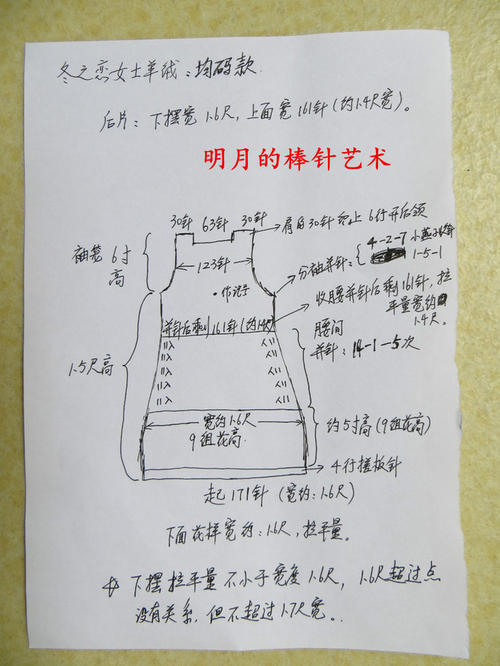 冬之恋女士羊绒：均码款.
后片：下摆宽1.6尺，上面宽161针（约1.4尺宽）。
明月的棒针艺术
30针 63针 30针
肩自30针 织上6行开后领
袖笼6寸高
123针
分袖并针：4-2-7
1-5-1
收腰并针后剩161针，拉平量宽约1.4尺.
并针后剩161针（约1.4尺）
腰间并针：14-1-5次
1.5尺高
宽约1.6尺
9组花高
约5寸高（9组花高）
4行搓板针
起171针（宽约：1.6尺）
下面花样宽约：1.6尺，拉平量。
下摆拉平量不小于宽度1.6尺，1.6尺超过点
没有关系，但不超过1.7尺宽。